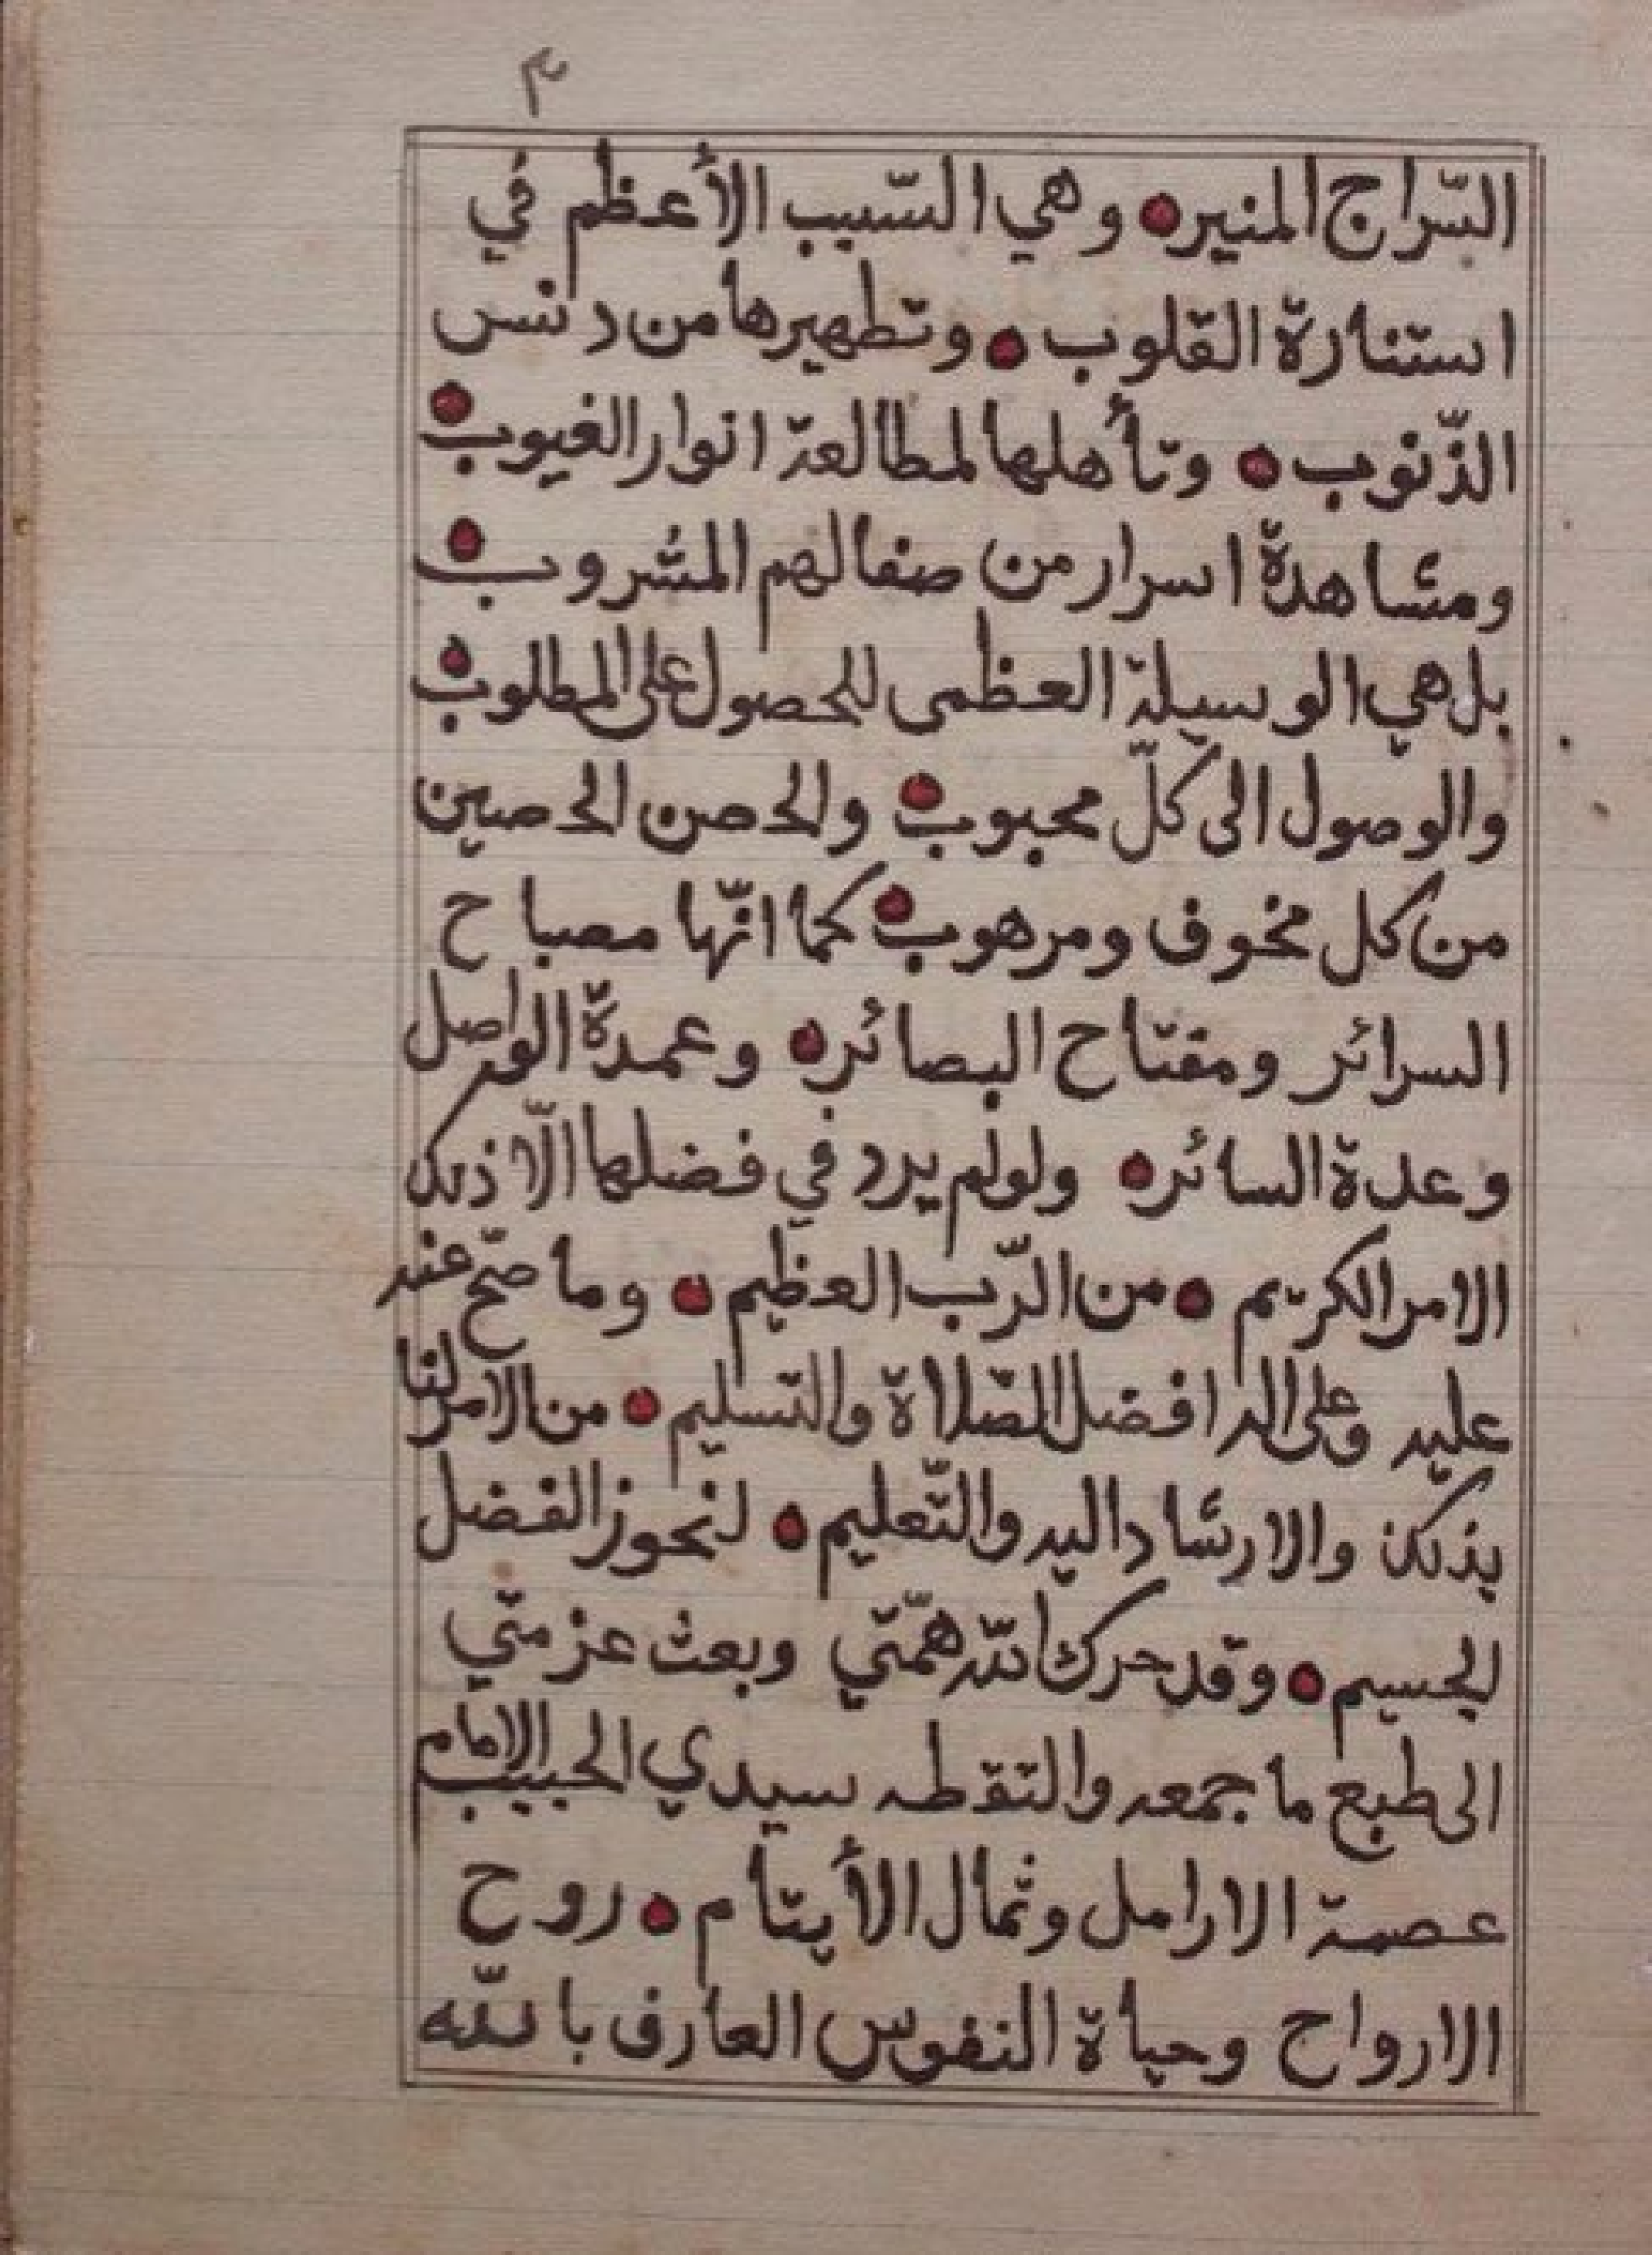 ٣
السّراج المنير وهي السّبب الأعظم في
استنارة القلوب وتطهيرها من دنس
الذّنوب وتأهلها لمطالعة انوار الغيوب
ومشاهدة اسرار من صفالهم المشروب
بل هي الوسيلة العظمى للحصول على المطلوب
والوصول الى كلّ محبوب والحصن الحصين
من كل مخوف ومرهوب كما انّها مصباح
السرائر ومفتاح البصائر وعمدة الواصل
وعدة السائر ولولم يرد في فضلها الّا ذلك
الامر الكريم من الرّب العظيم وما صّح عنه
عليه وعلى اله افضل الصّلاة والتسليم من الامر لنا
بذلك والارشاد اليه والتّعليم لنحوز الفضل
الجسيم وقد حرك الله همّتي وبعث عزمتي
الى طبع ما جمعه والتقطه سيدي الحبيب الامام
عصمة الارامل وثمال الأيتام روح
الارواح وحياة النفوس العارف بالله